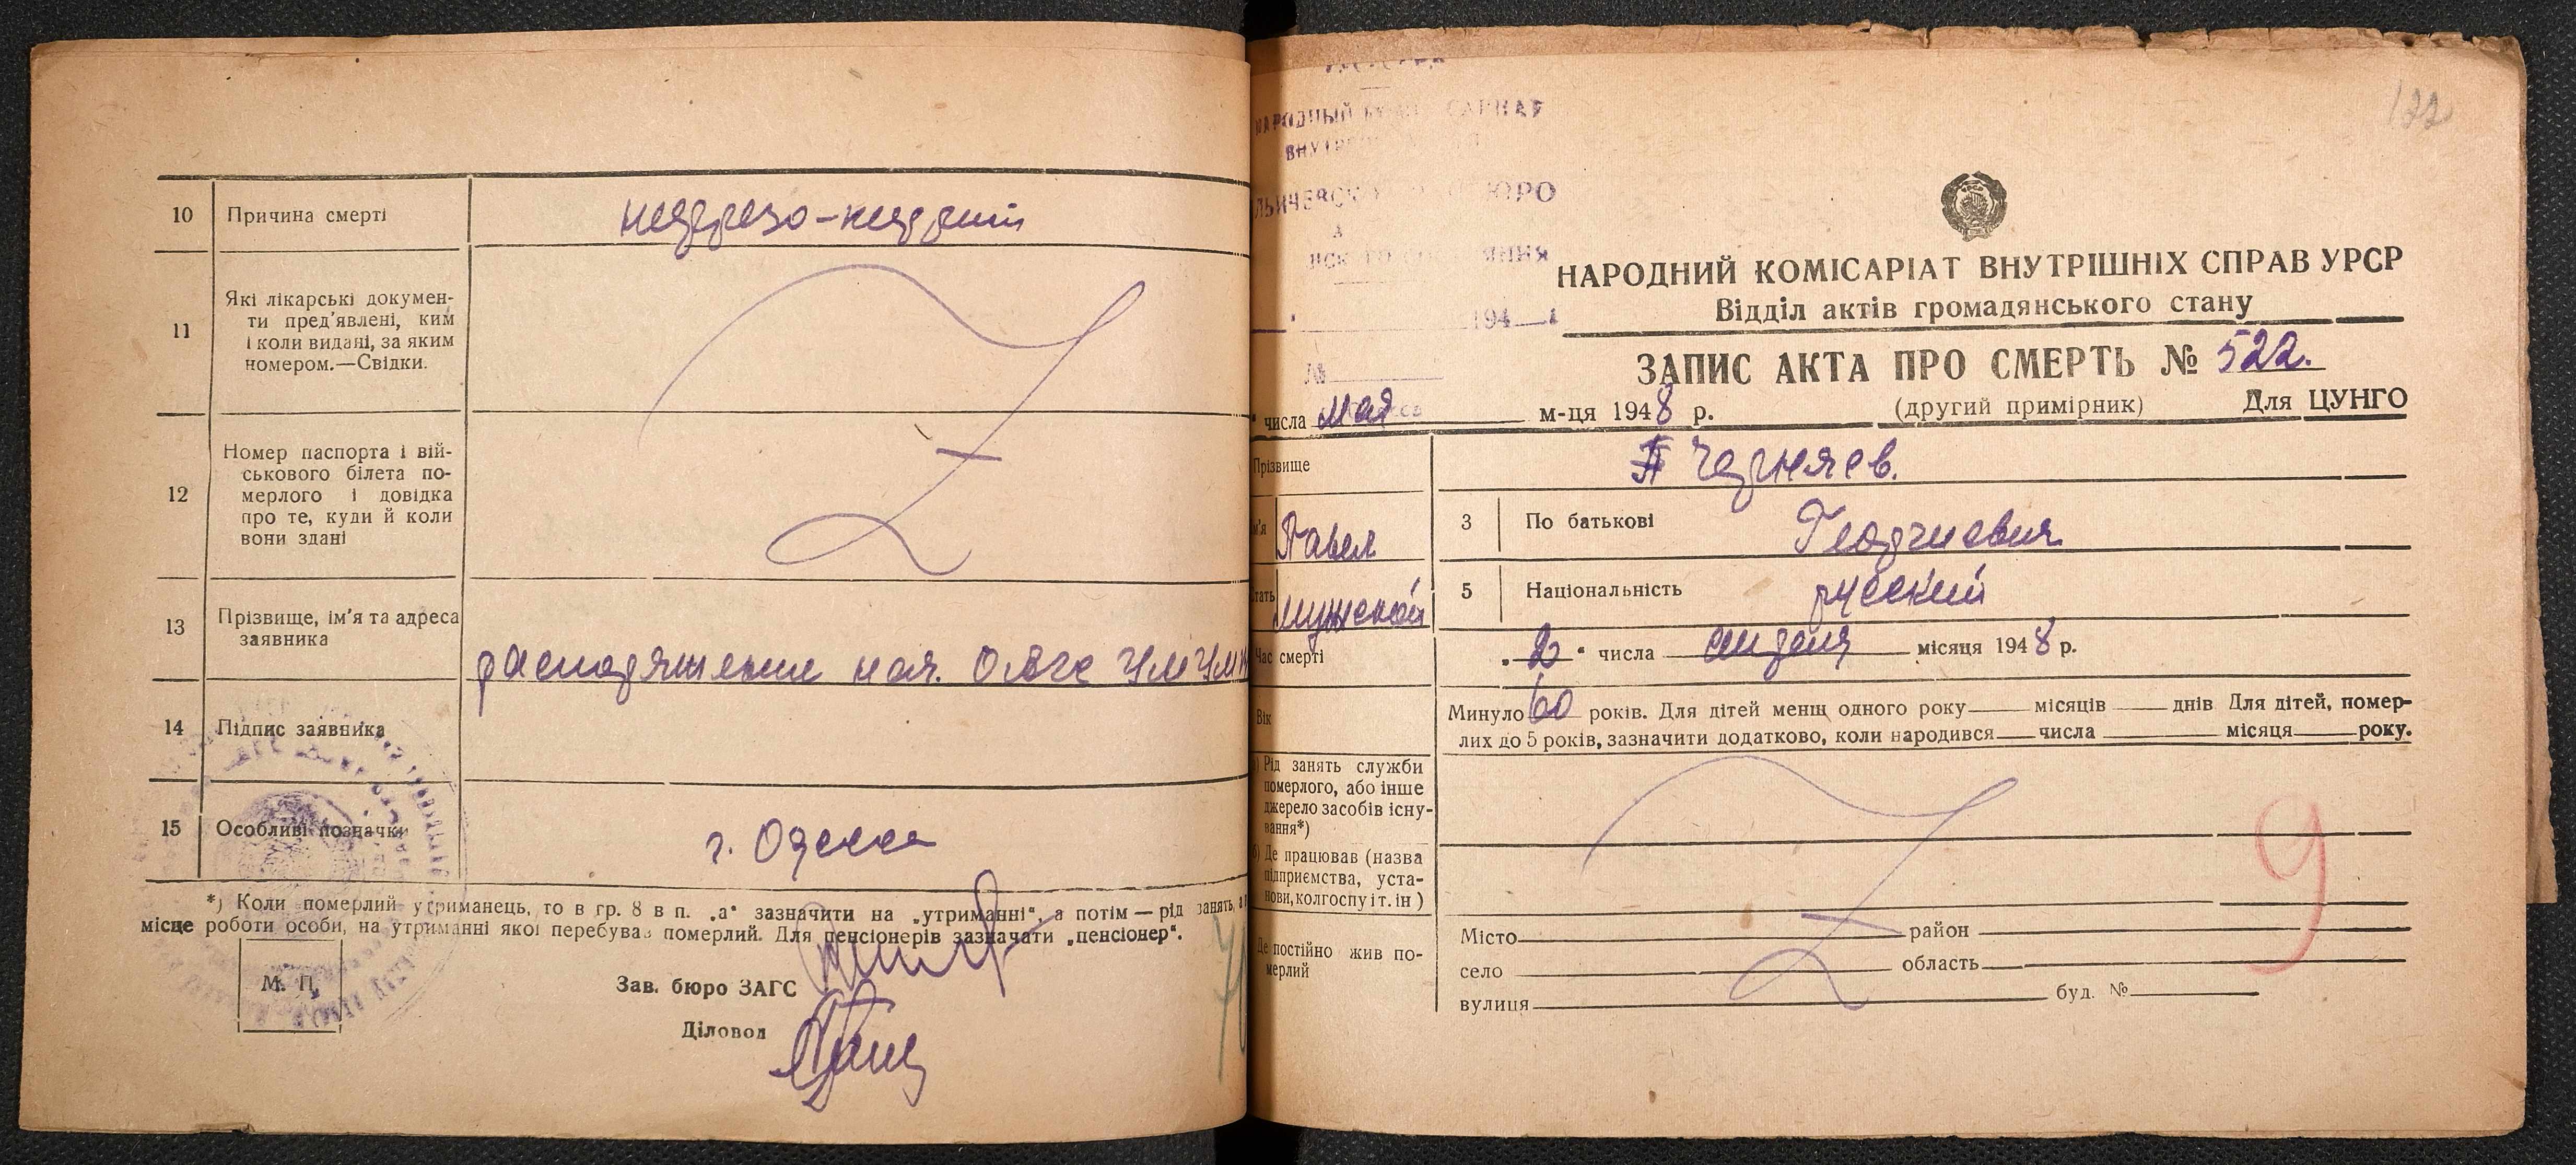 10 Причина смерті
11 Які лікарські докумен-
ти пред'явлені, ким
і коли видані, за яким
номером.—Свідки.
12 Номер паспорта і вій-
ськового білета по-
мерлого і довідка
про те, куди й коли
вони здані
13 Прізвище, ім'я та адреса
заявника
распоряжение нач. ОАГС
14 Підпис заявника
15 Особливі позначки г. Одесса
*) Коли померлий утриманець, то в гр. 8 в п. „а" зазначити на „утриманні", а потім — рід занять, а
місце роботи особи, на утриманні якої перебував померлий. Для пенсіонерів зазначати „пенсіонер".
М. П.
Зав. бюро ЗАГС
Діловод
122
НАРОДНЫЙ КОМИССАРИАТ
ВНУТР
ЛЬИЧЕВСКО БЮРО
СОСТОЯНИЯ
194
№
НАРОДНИЙ КОМІСАРІАТ ВНУТРІШНІХ СПРАВ УРСР
Відділ актів громадянського стану
ЗАПИС АКТА ПРО СМЕРТЬ № 522.
" числа мая м-ця 1948 р. (другий примірник) Для ЦУНГО
Прізвище Черняев.
м'я Павел 3 По батькові Георгиевич
тать мужской 5 Національність русский
Час смерті „2" числа апреля місяця 1948 р.
Вік Минуло 60 років. Для дітей менш одного року місяців днів Для дітей, помер-
лих до 5 років, зазначити додатково, коли народився числа місяця року.
) Рід занять служби
померлого, або інше
джерело засобів існу-
вання*)
) Де працював (назва
підприємства, уста-
нови, колгоспу і т. ін )
Де постійно жив по-
мерлий
Місто район
село область
вулиця буд. №
9